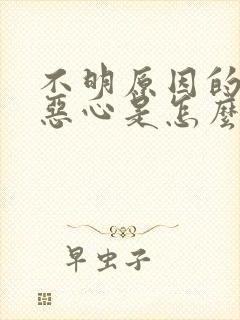 不明原因的
惡心是怎麼
早虫子